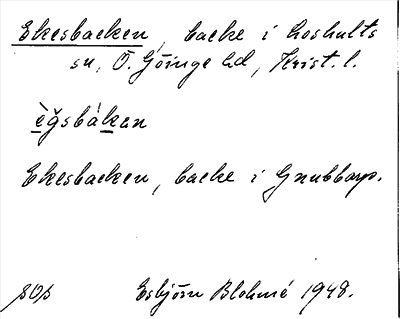 Ekesbacken, backe i Loshults
sn, Ö. Göinge hd, Krist. l.
èg̀sbákan
Ekesbacken, backe i Gnubbarp.
sOs Esbjörn Blohmé 1948.